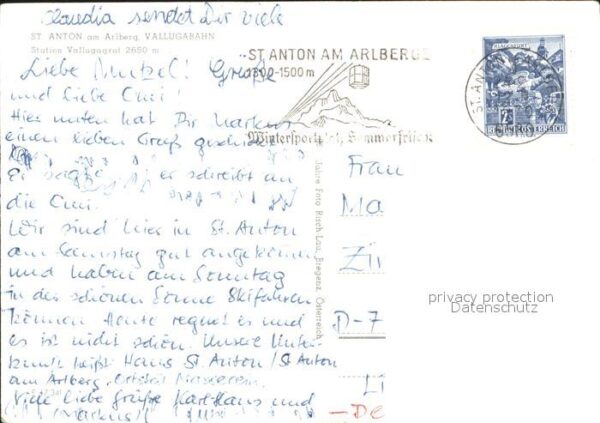 Claudia sendet Dir viele
ST. ANTON am Arlberg, VALLUGABAHN
Station Vallugagrat 2650 m
Liebe Mutzel! Grüße
und liebe Omi!
Hier unten hat Dir Markus
einen lieben Gruß geschickt
Er sagte er schreibt an
die Omi.
Wir sind hier in St. Anton
am Samstag gut angekommen
und haben am Sonntag
in der schönen Sonne Skifahren
können. Heute regnet es und
es ist nicht schön. Unsere Unter-
kunft heißt: Haus St. Anton / St. Anton
am Arlberg, Ortsteil Nasserein.
Viele liebe Grüße Karl-Hans und
(Markus)
ST ANTON AM ARLBERG
1300-1500 m
Wintersportplatz, Sommerfrische
ST. ANTON
REPUBLIK ÖSTERREICH
Foto Risch-Lau, Bregenz, Österreich
Frau
Ma
Zi
D-7
Li
-De
privacy protection
Datenschutz